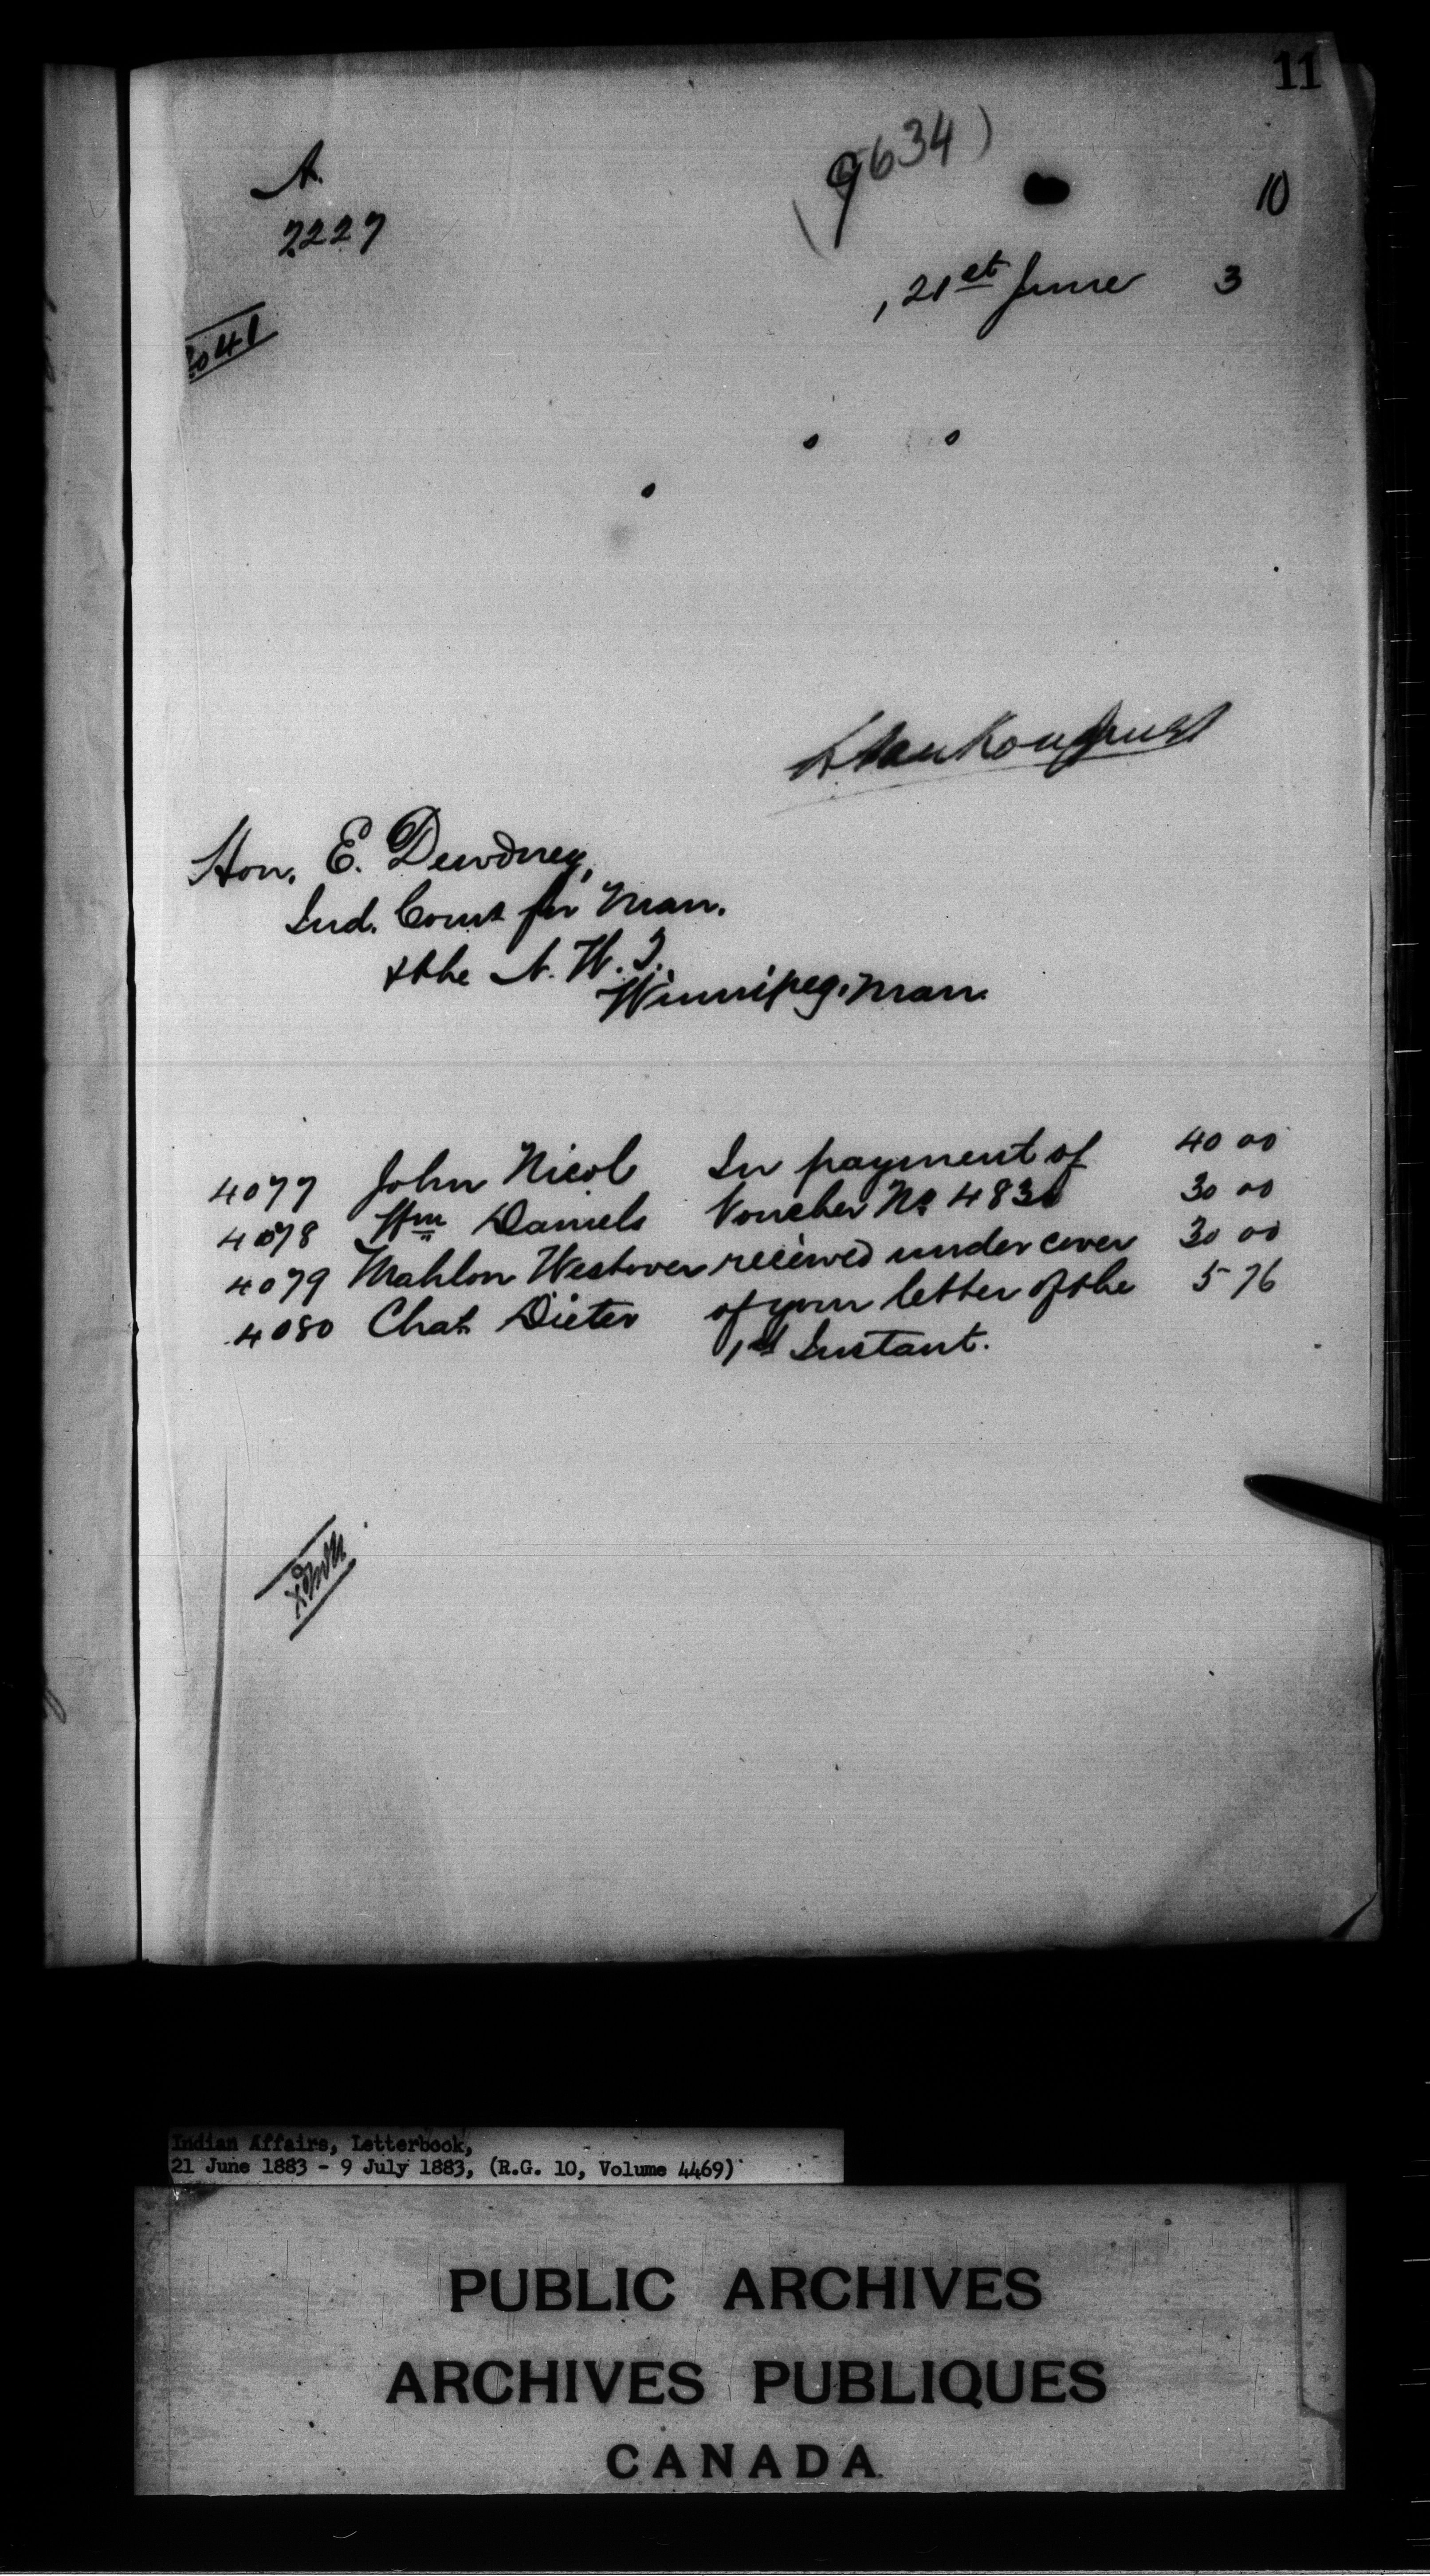 11
A.
2227
(9634)
10
, 21st June 3
2041
L VanKoughnet
Hon. E. Dewdney,
Ind. Comr for Man.
& the N. W. T.
Winnipeg. Man.
4077 John Nicol In payment of 40 00
4078 Wm Daniels Voucher No 483 30 00
4079 Mahlon Westover received under cover 30 00
4080 Chas Dieter of your letter of the 5 76
1st Instant.
Indian Affairs, Letterbook,
21 June 1883 - 9 July 1883, (R.G. 10, Volume 4469)
PUBLIC ARCHIVES
ARCHIVES PUBLIQUES
CANADA